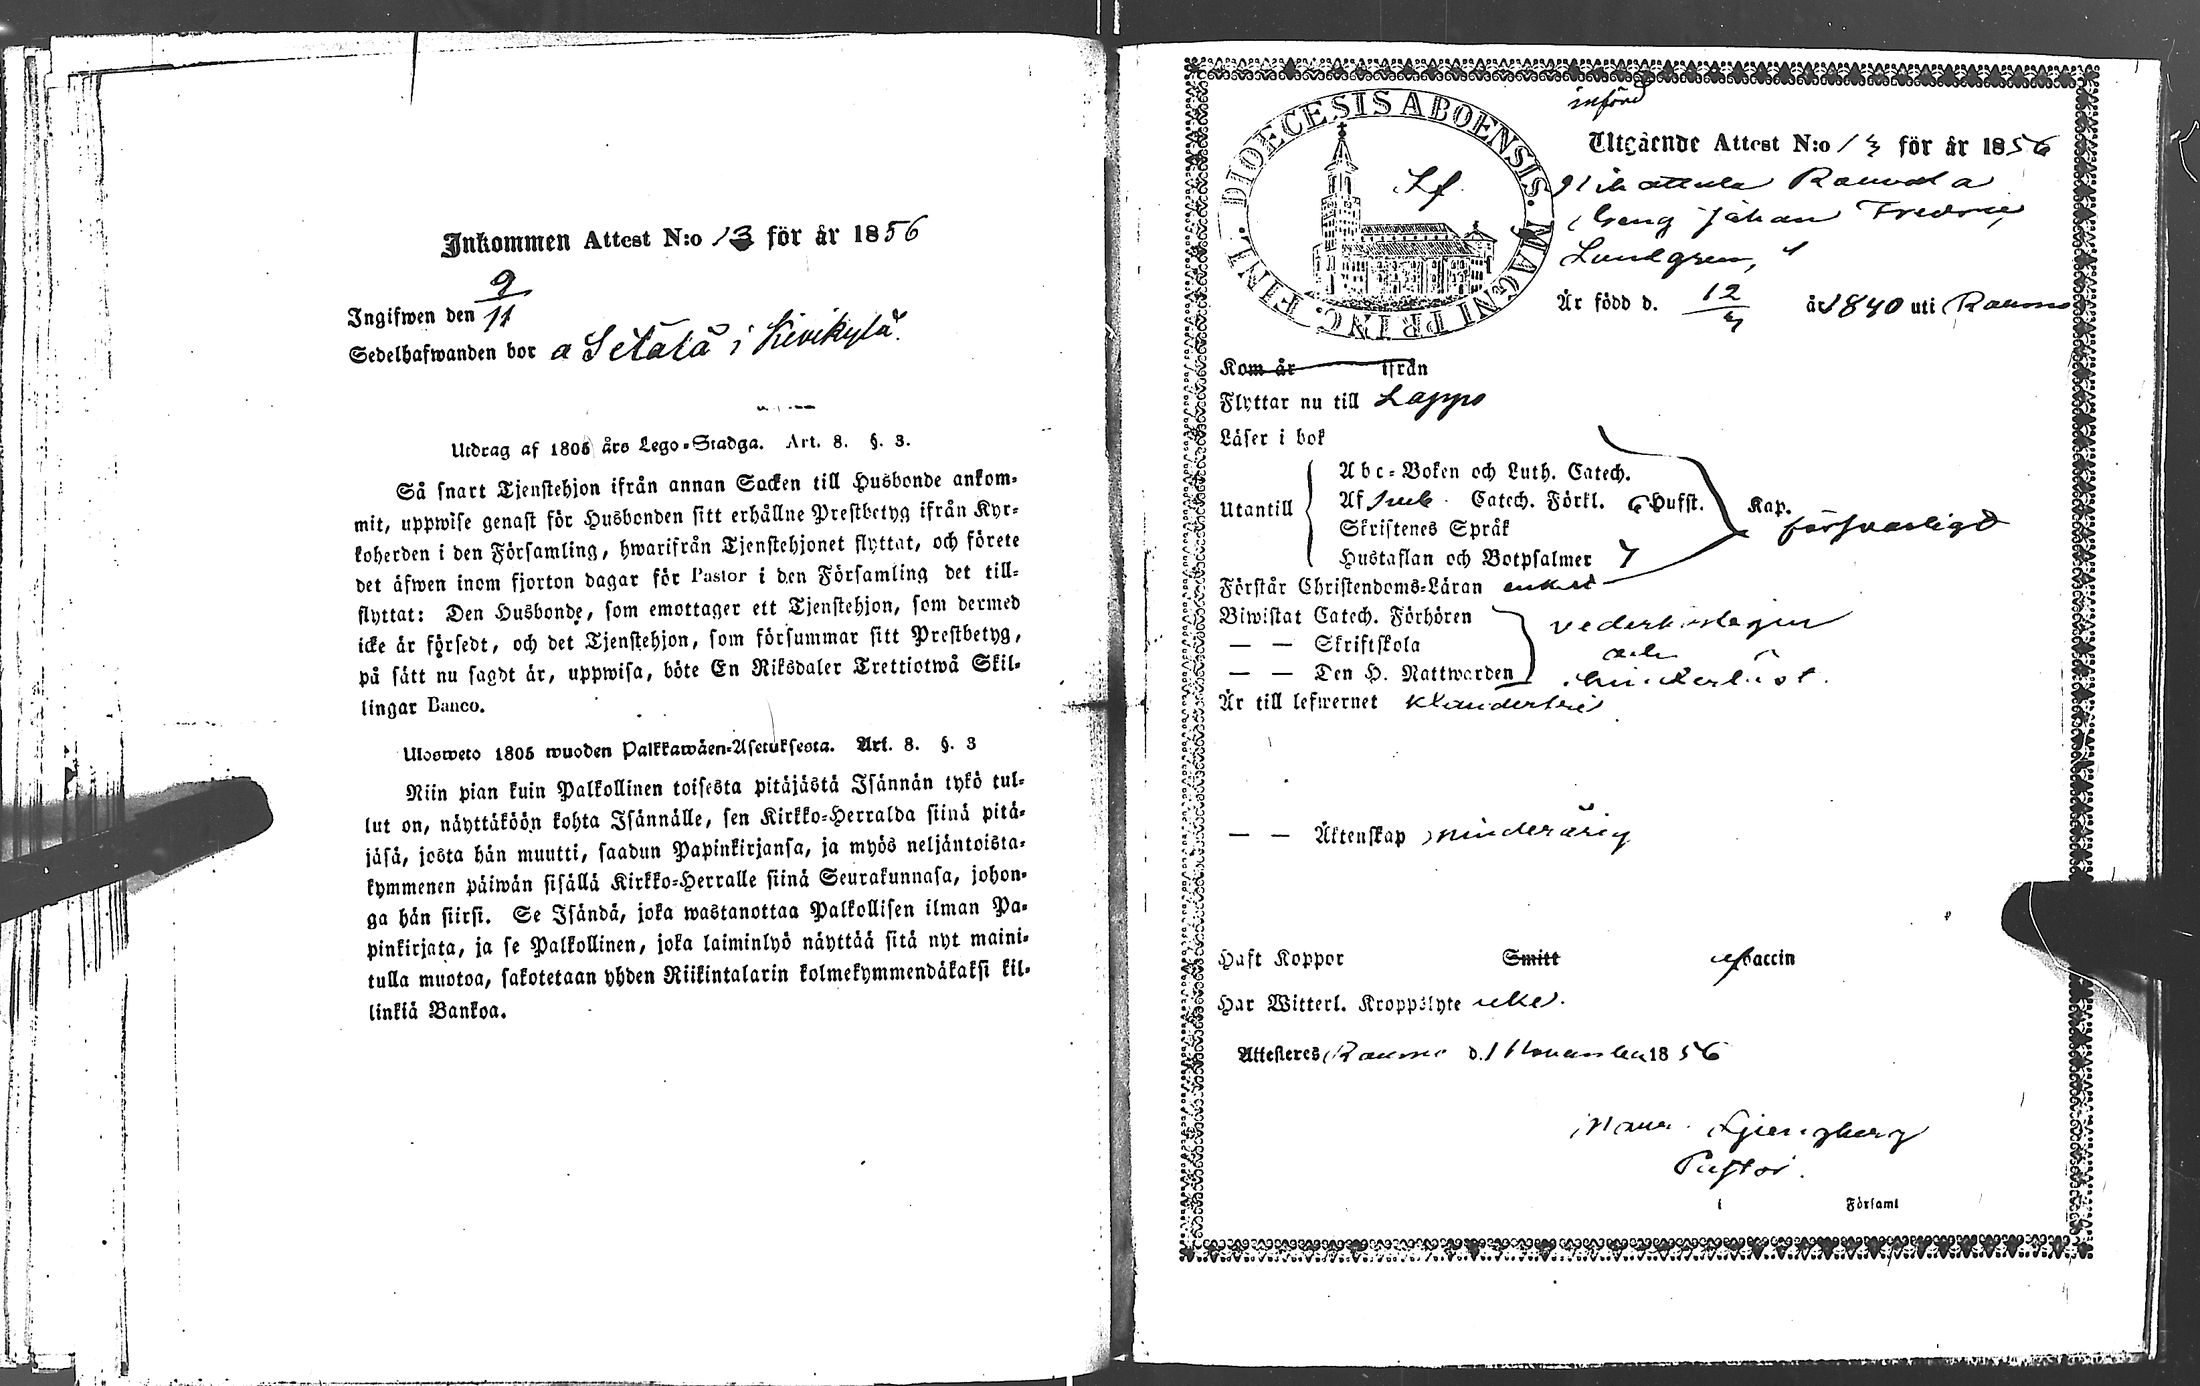 Inkommen Attest N:o 13 för år 1856
Ingifwen den 9/11
Sedelhafwanden bor a Setälä i Kivikylä.
Utdrag af 1805 års Lego-Stadga. Art. 8. §. 3.
Så snart Tjenstehjon ifrån annan Socken till Husbonde ankom-
mit, uppwise genast för Husbonden sitt erhållne Prestbetyg ifrån Kyr-
koherden i den Församling, hwarifrån Tjenstehjonet flyttat, och förete
det äfwen inom fjorton dagar för Pastor i den Församling det till-
flyttat: Den Husbonde, som emottager ett Tjenstehjon, som dermed
icke är försedt, och det Tjenstehjon, som försummar sitt Prestbetyg,
på sätt nu sagdt är, uppwisa, böte En Riksdaler Trettiotwå Skil-
lingar Banco.
Ulosweto 1805 wuoden Palkkawäen-Asetuksesta. Art. 8. §. 3
Niin pian kuin Palkollinen toisesta pitäjästä Isännän tykö tul-
lut on, näyttäköön kohta Isännälle, sen Kirkko-Herralda siinä pitä-
jäsä, josta hän muutti, saadun Papinkirjansa, ja myös neljäntoista-
kymmenen päiwän sisällä Kirkko-Herralle siinä Seurakunnasa, johon-
ga hän siirsi. Se Isändä, joka wastanottaa Palkollisen ilman Pa-
pinkirjata, ja se Palkollinen, joka laiminlyö näyttää sitä nyt maini-
tulla muotoa, sakotetaan yhden Riikintalarin kolmekymmendäkaksi kil-
linkiä Bankoa.
införd
DIOECESIS ABOENSIS. MAGNI PRINC. FINL.
Utgående Attest N:o 13 för år 1856
Johan Fredric
Lundgren,
Är född d. 12 år 1840 uti Raumo
Kom år ifrån
Flyttar nu till Lappo
Läser i bok
Utantill
Abc-Boken och Luth. Catech.
Af Catech. Förkl. 6 Hufst. Kap.
Skriftenes Språk
Hustaflan och Botpsalmer 7
försvarligt
Förstår Christendoms-Läran enkelt
Biwistat Catech. Förhören
— — Skriftskola
— — Den H. Nattwarden
vederbörligen
och
hinderlöst.
Är till lefwernet klanderfri
— — Äktenskap minderårig
Haft Koppor Smitt Vaccin
Har Witterl. Kroppslyte icke.
Attesteres Raumo d. 1 November 1856
Pastor.
i Församl